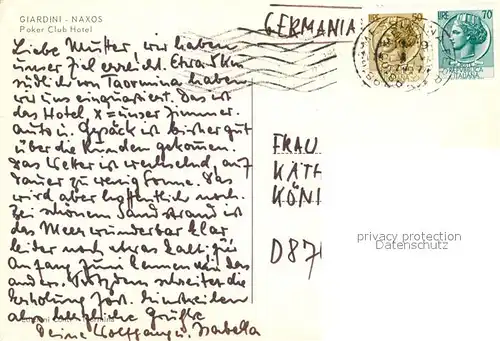 GIARDINI - NAXOS
Poker Club Hotel
GERMANIA
50
LIRE 70
Liebe Mutter, wir haben
unser Ziel erreicht. Etwa 5 km
südlich von Taormina haben
wir uns einquartiert. Das ist
das Hotel, X = unser Zimmer.
Auto u. Gepäck ist bisher gut
über die Runden gekommen.
Das Wetter ist wechselnd, auf
Dauer zu wenig Sonne. Das
wird aber hoffentlich noch.
Bei schönem Sandstrand ist
das Meer wunderbar klar
leider noch etwas kalt. Für
Anfang Juni kennen wir das
anders. Trotzdem schreitet die
Erholung fort. Einstweilen
also herzliche Grüße
Deine Wolfgang u. Isabella
FRAU
KÄTH
KÖNI
D 87
privacy protection
Datenschutz